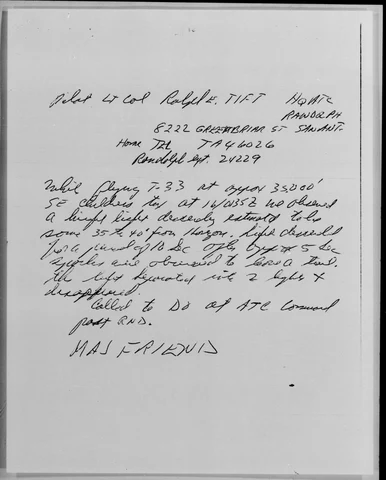 Pilot Lt Col Ralph E. TIFT HQ ATC
RANDOLPH
8222 GREENBRIAR ST SAN ANT.
Home TEL TA46026
Randolph 24229
While flying T-33 at approx 35,000'
SE childress tex at he observed
a bright light estimated to be
some 35 to 40° from Horizon. Light
for a period of 10 sec after 5 sec
observed to leave a trail
the light separated into 2 lights &
disappeared
Called to DO at ATC Command
post RND.
MAJ FRIEND